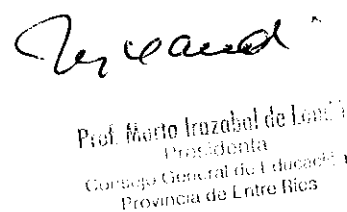 Prof. Marta Irazabal de
Presidenta
Consejo General de Educació
Provincia de Entre Ríos